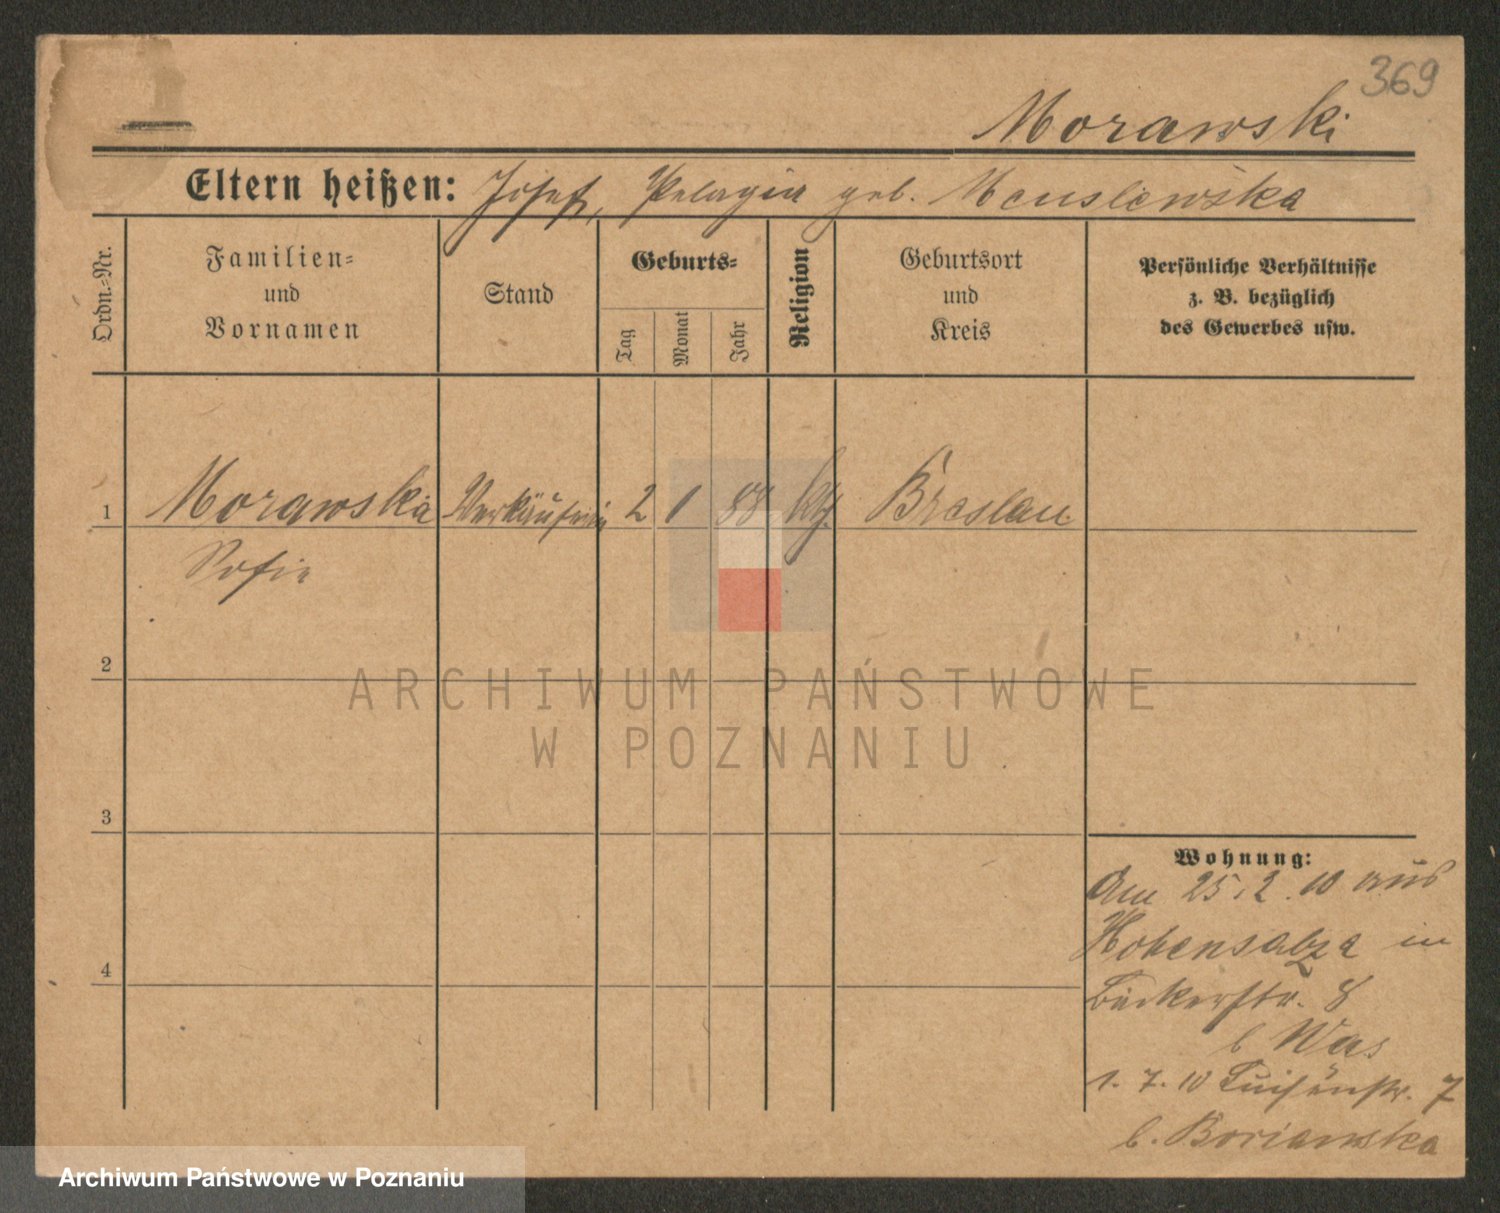 369
Morawski
Eltern heißen: Josef, Pelagia geb.
Ordn.-Nr.
Familien-
und
Vornamen
Stand
Geburts-
Tag
Monat
Jahr
Religion
Geburtsort
und
Kreis
Persönliche Verhältnisse
z. B. bezüglich
des Gewerbes usw.
1 Morawska Verkäuferin 2 1 88 kth. Breslau
Sofie
2
3
4
Wohnung:
Am 25.2.10 aus
Hohensalza in
Bäckerstr. 8
b Was
1. 7. 10 Luisenstr. 7
b. Borianska
ARCHIWUM PAŃSTWOWE
W POZNANIU
Archiwum Państwowe w Poznaniu